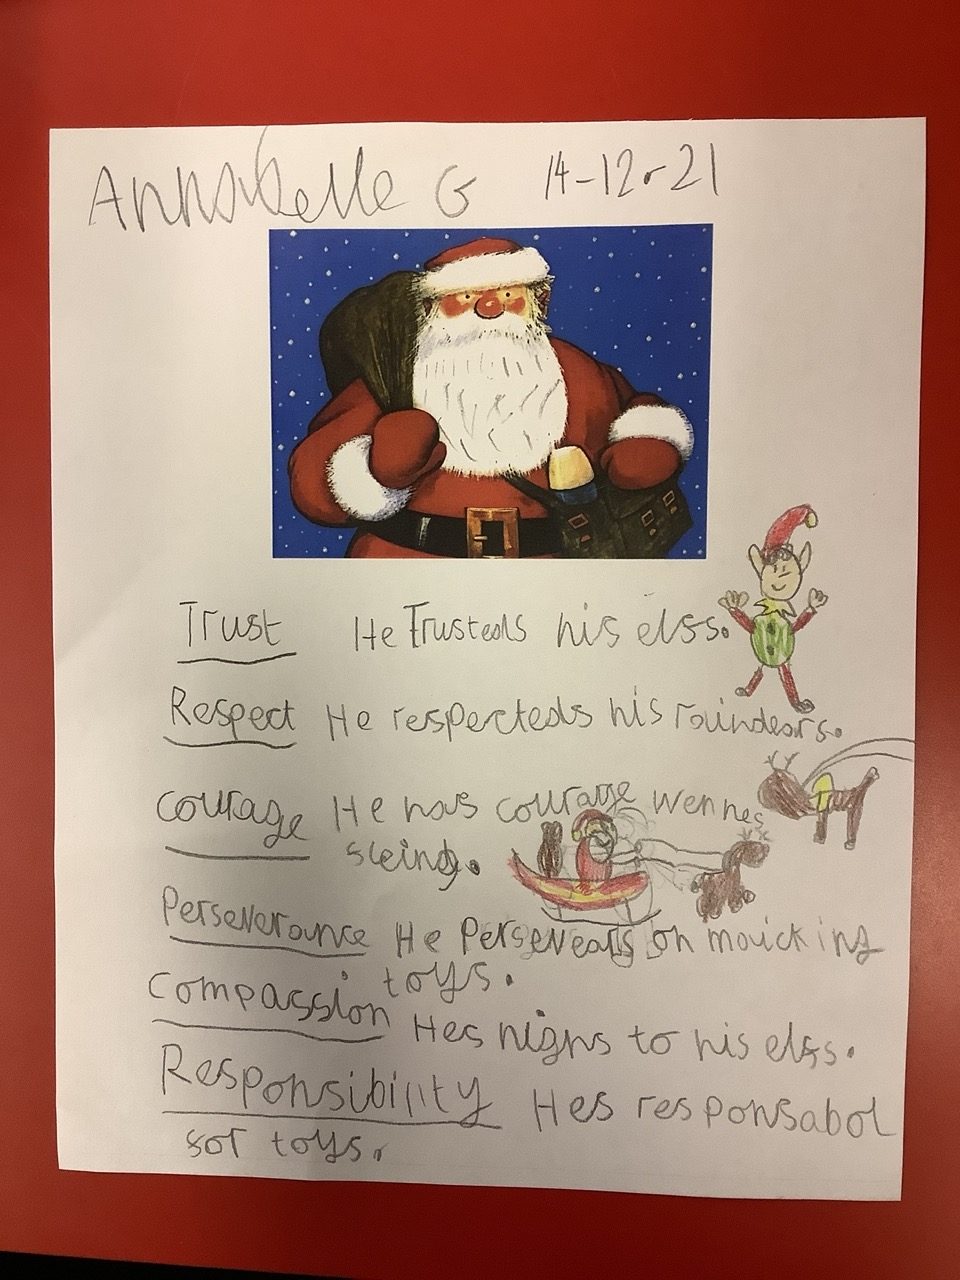 Annabelle G 14-12-21
Trust He Trusteds his elss.
Respect He respecteds his raindears.
Courage He has courage wen hes
sleing.
Perseverance He Persevears on maicking
toys.
Compassion Hes nighs to his elss.
Responsibility Hes responsabol
sor toys.